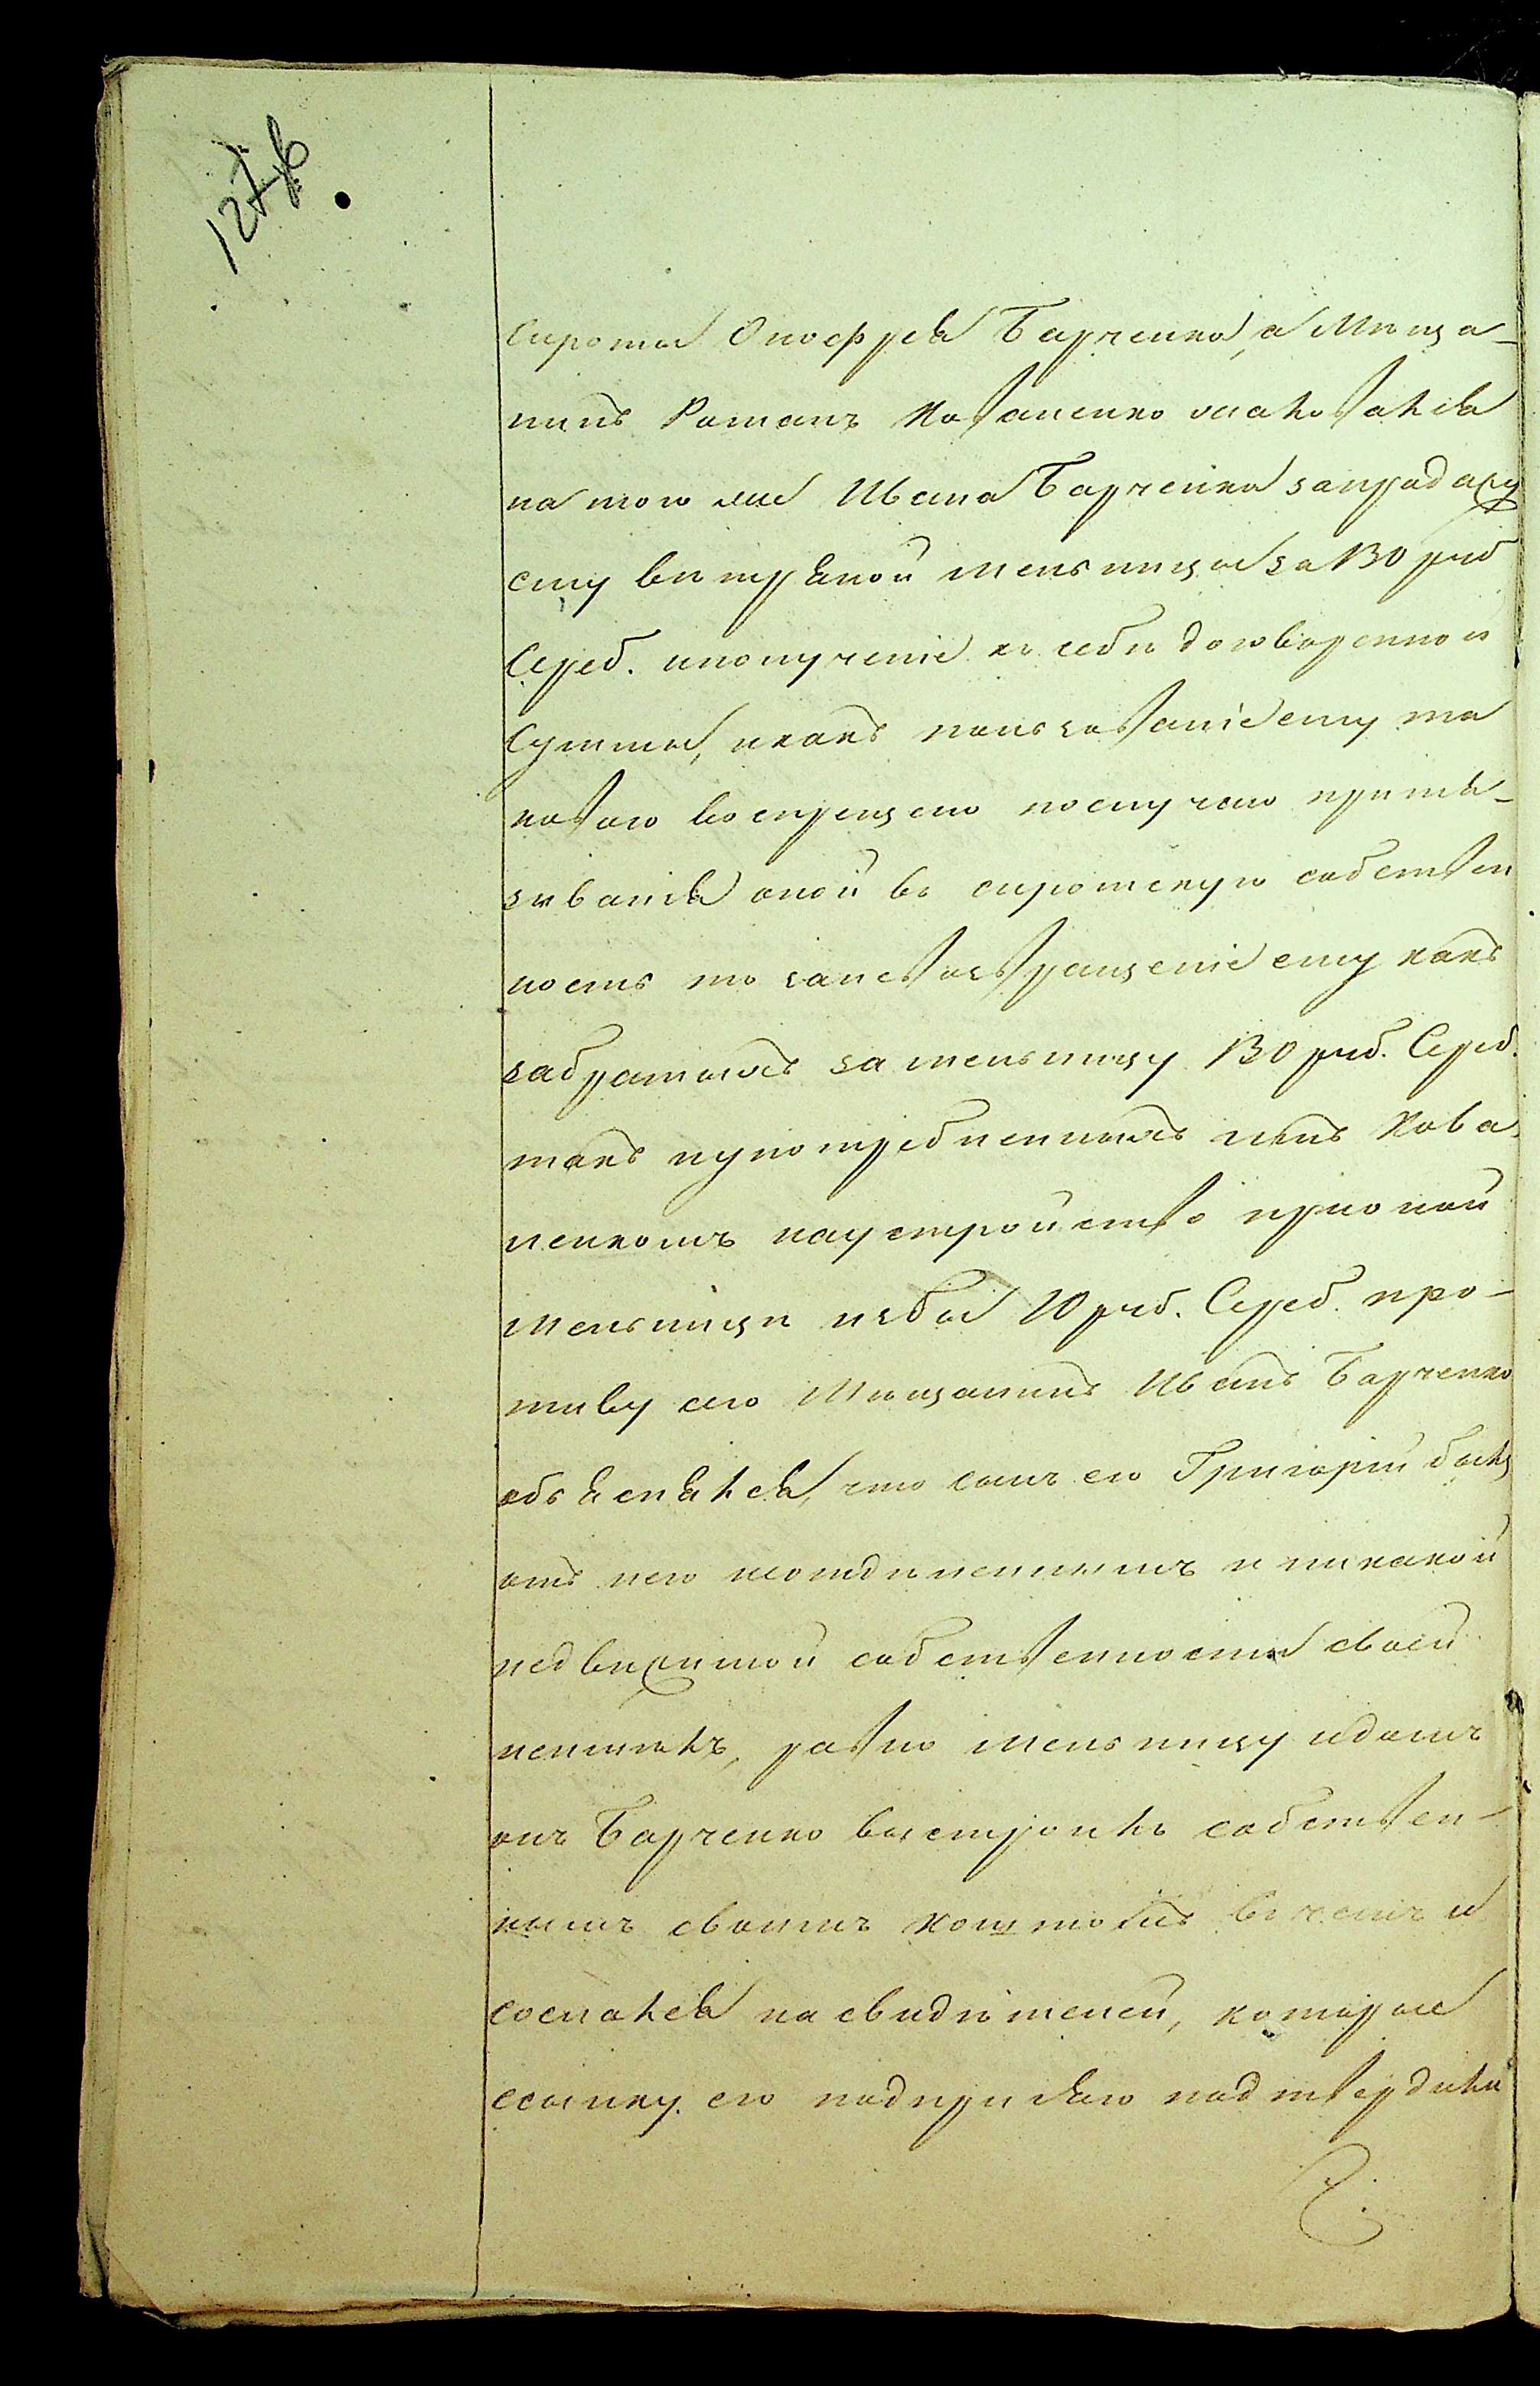 127 об
сироты Онофрея Барченка, а Мѣща-
нинъ Романъ Коваленко жаловался
на того же Ивана Барченка за продажу
ему вѣтряной мельницы за 130 руб
Сереб. и получение къ себѣ договоренной
суммы, и какъ пользованіе ему та
ковою воспрещено по случаю притя-
зыванія оной въ сиротскую собствен
ность то за невозвращеніе ему какъ
забратыхъ за мельницу 130 руб. Сереб.
такъ и употребленныхъ имъ Кова-
ленкомъ на устройство при оной
мельницѣ избы 10 руб. Сереб. про-
тиву сего Мѣщанинъ Иванъ Барченко
объяснялся, что сынъ его Григорій былъ
отъ него неотдѣленнымъ и никакой
недвижимой собственности своей
неимѣлъ, равно мельницу и домъ
онъ Барченко выстроилъ собствен-
нымъ своимъ коштомъ въ чемъ и
сослался на свидѣтелей, которые
ссылку его под присягою подтвердили